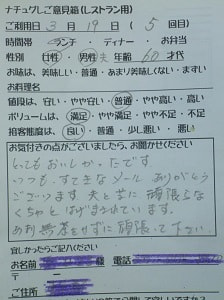 ナチュグしご意見箱(レストラン用)
ご利用日 3月19日(5回目)
時間帯 ランチ・ディナー・お弁当
性別 女性 男性 年齢 60才代
お味は、美味しい・普通・あまり美味しくない・まずい
お料理名
値段は、安い・やや安い・普通・やや高い・高い
ボリュームは、満足・やや満足・やや不足・不足
接客態度は、良い・普通・少し悪い・悪い
お気付きの点がございましたら、お聞かせください
とってもおいしかったです
いつも、すてきなソール ありがとう
ございます 夫と共に 頑張らな
くちゃと はげまされています。
お料理 をせずに頑張って下さい
宜しかったらご記入ください
お名前 様 電話
〒 ー
ご住所